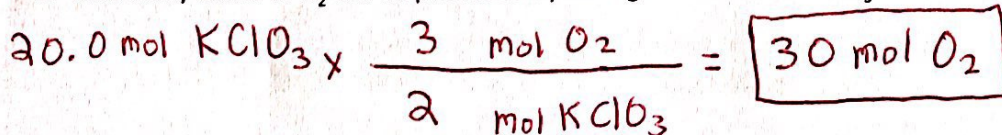 20.0 mol KClO3 x 3 mol O2 / 2 mol KClO3 = 30 mol O2